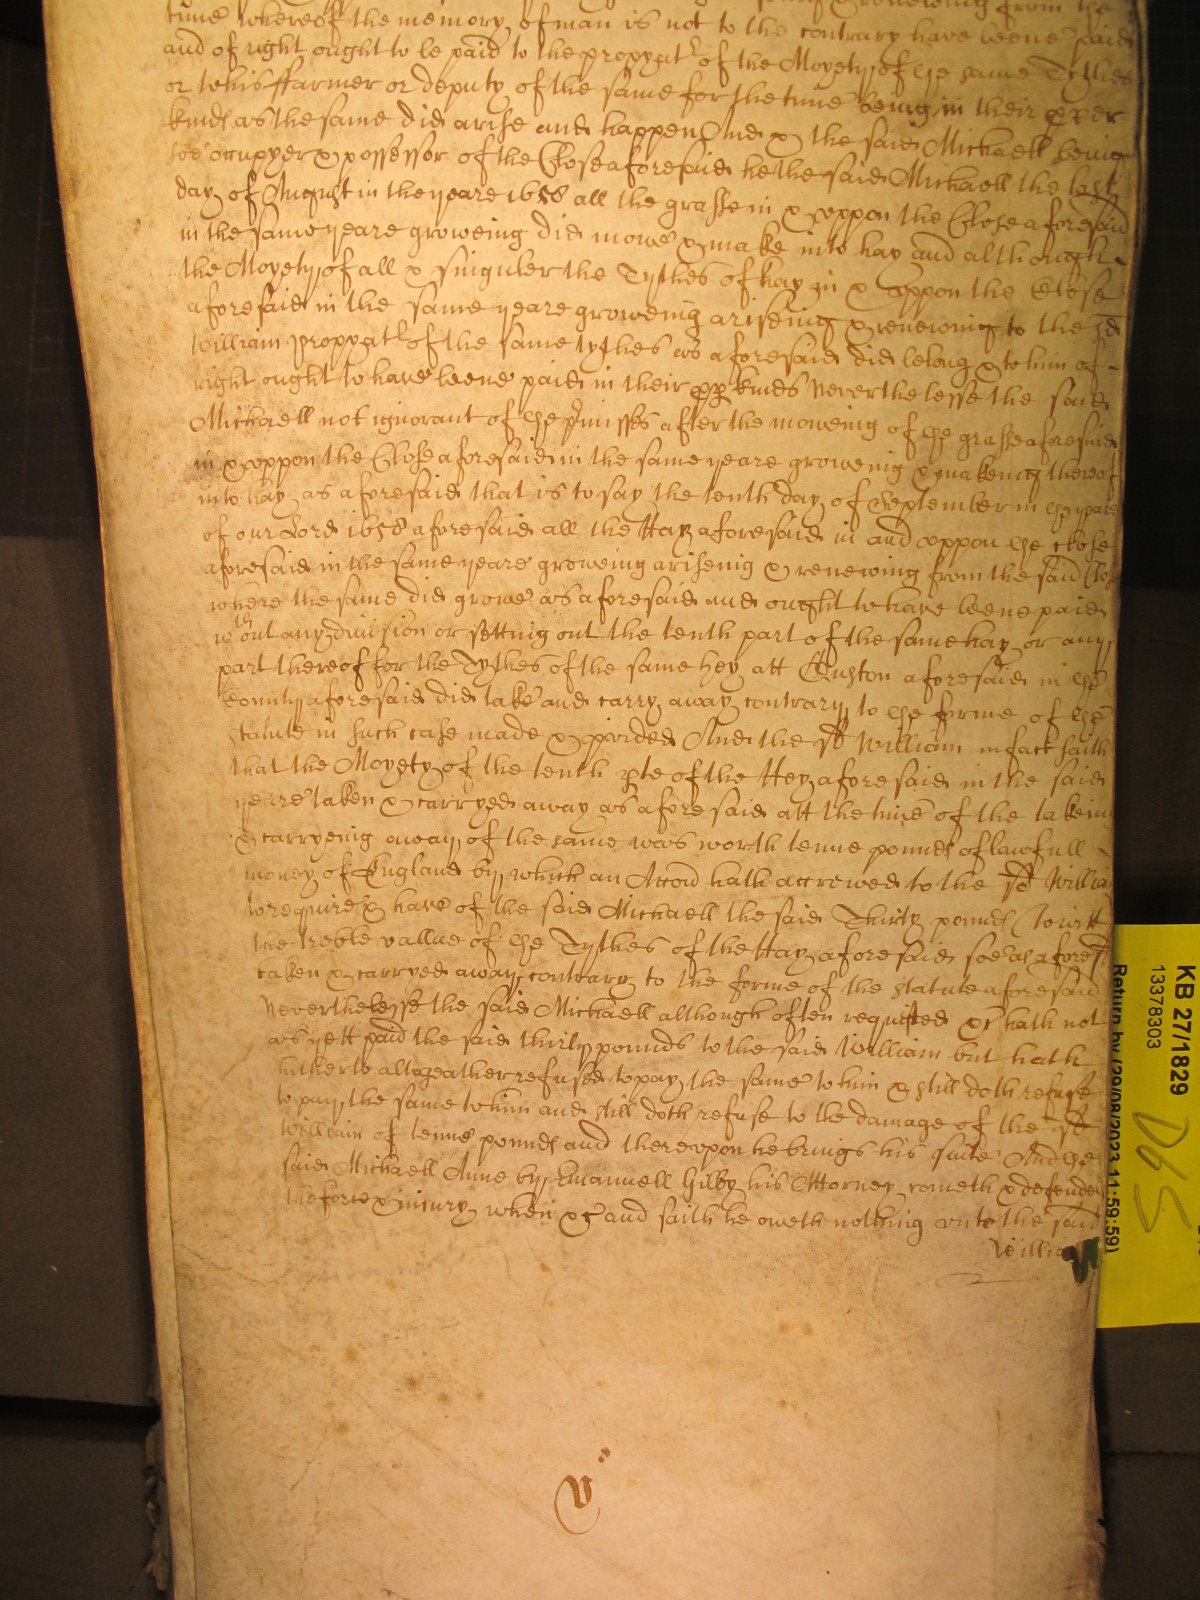 renewing from the
time whereof the memory of man is not to the contrary have beene paid
and of right ought to be paid to the propryat^r of the Moyety of the same Tythes
or to his ffarmer or deputy of the same for the time being in their
kinds as the same did arise and happen And & the said Michaell being
soe occupyer & possessor of the Close aforesaid he the said Michaell the last
day of August in the yeare 1658 all the grasse in & uppon the Close aforesaid
in the same yeare groweing did mowe & make into hay and although
the Moyety of all & singuler the Tythes of hay in & uppon the Close
aforesaid in the same yeare groweing ariseing & renewing to the sd
William propryat^r of the same tythes as aforesaid did belong & to him of
right ought to have beene paid in their kinds Neverthelesse the said
Michaell not ignorant of the p^rmisses after the moweing of the grasse aforesaid
in & uppon the Close aforesaid in the same yeare groweing & makeing thereof
into hay as aforesaid that is to say the tenth day of September in the yeare
of our Lord 1658 aforesaid all the Hay aforesaid in and uppon the close
aforesaid in the same yeare groweing ariseing & renewing from the said Close
where the same did growe as aforesaid and ought to have beene paid
w^thout any division or setting out the tenth part of the same hay or any
part thereof for the Tythes of the same hey att aforesaid in the
County aforesaid did take and carry away contrary to the forme of the
statute in such case made & p^rvided And the sd William in fact saith
that the Moyety of the tenth pte of the Hey aforesaid in the said
yeare taken & carryed away as aforesaid att the time of the takeing
& carryeing away of the same was worth tenne pounds of lawfull
money of England by which an Accon hath accrewed to the sd William
to require & have of the said Michaell the said Thirty pounds (to witt
the treble vallue of the Tythes of the Hay aforesaid soe as aforesd
taken & carryed away contrary to the forme of the statute aforesaid
Neverthelesse the said Michaell although often requested &c hath not
as yett paid the said thirty pounds to the said William but hath
hitherto altogeather refused to pay the same to him & still doth refuse
to pay the same to him and still doth refuse to the damage of the sd
William of tenne pounds and thereupon he brings his suite And the
said Michaell Anne by Emannuell Gilby his Attorney cometh & defendeth
the force & injury when &c and saith he oweth nothing unto the said
William
V
KB 27/1829
13378303
Return by (29/08/2023 11:59:59)